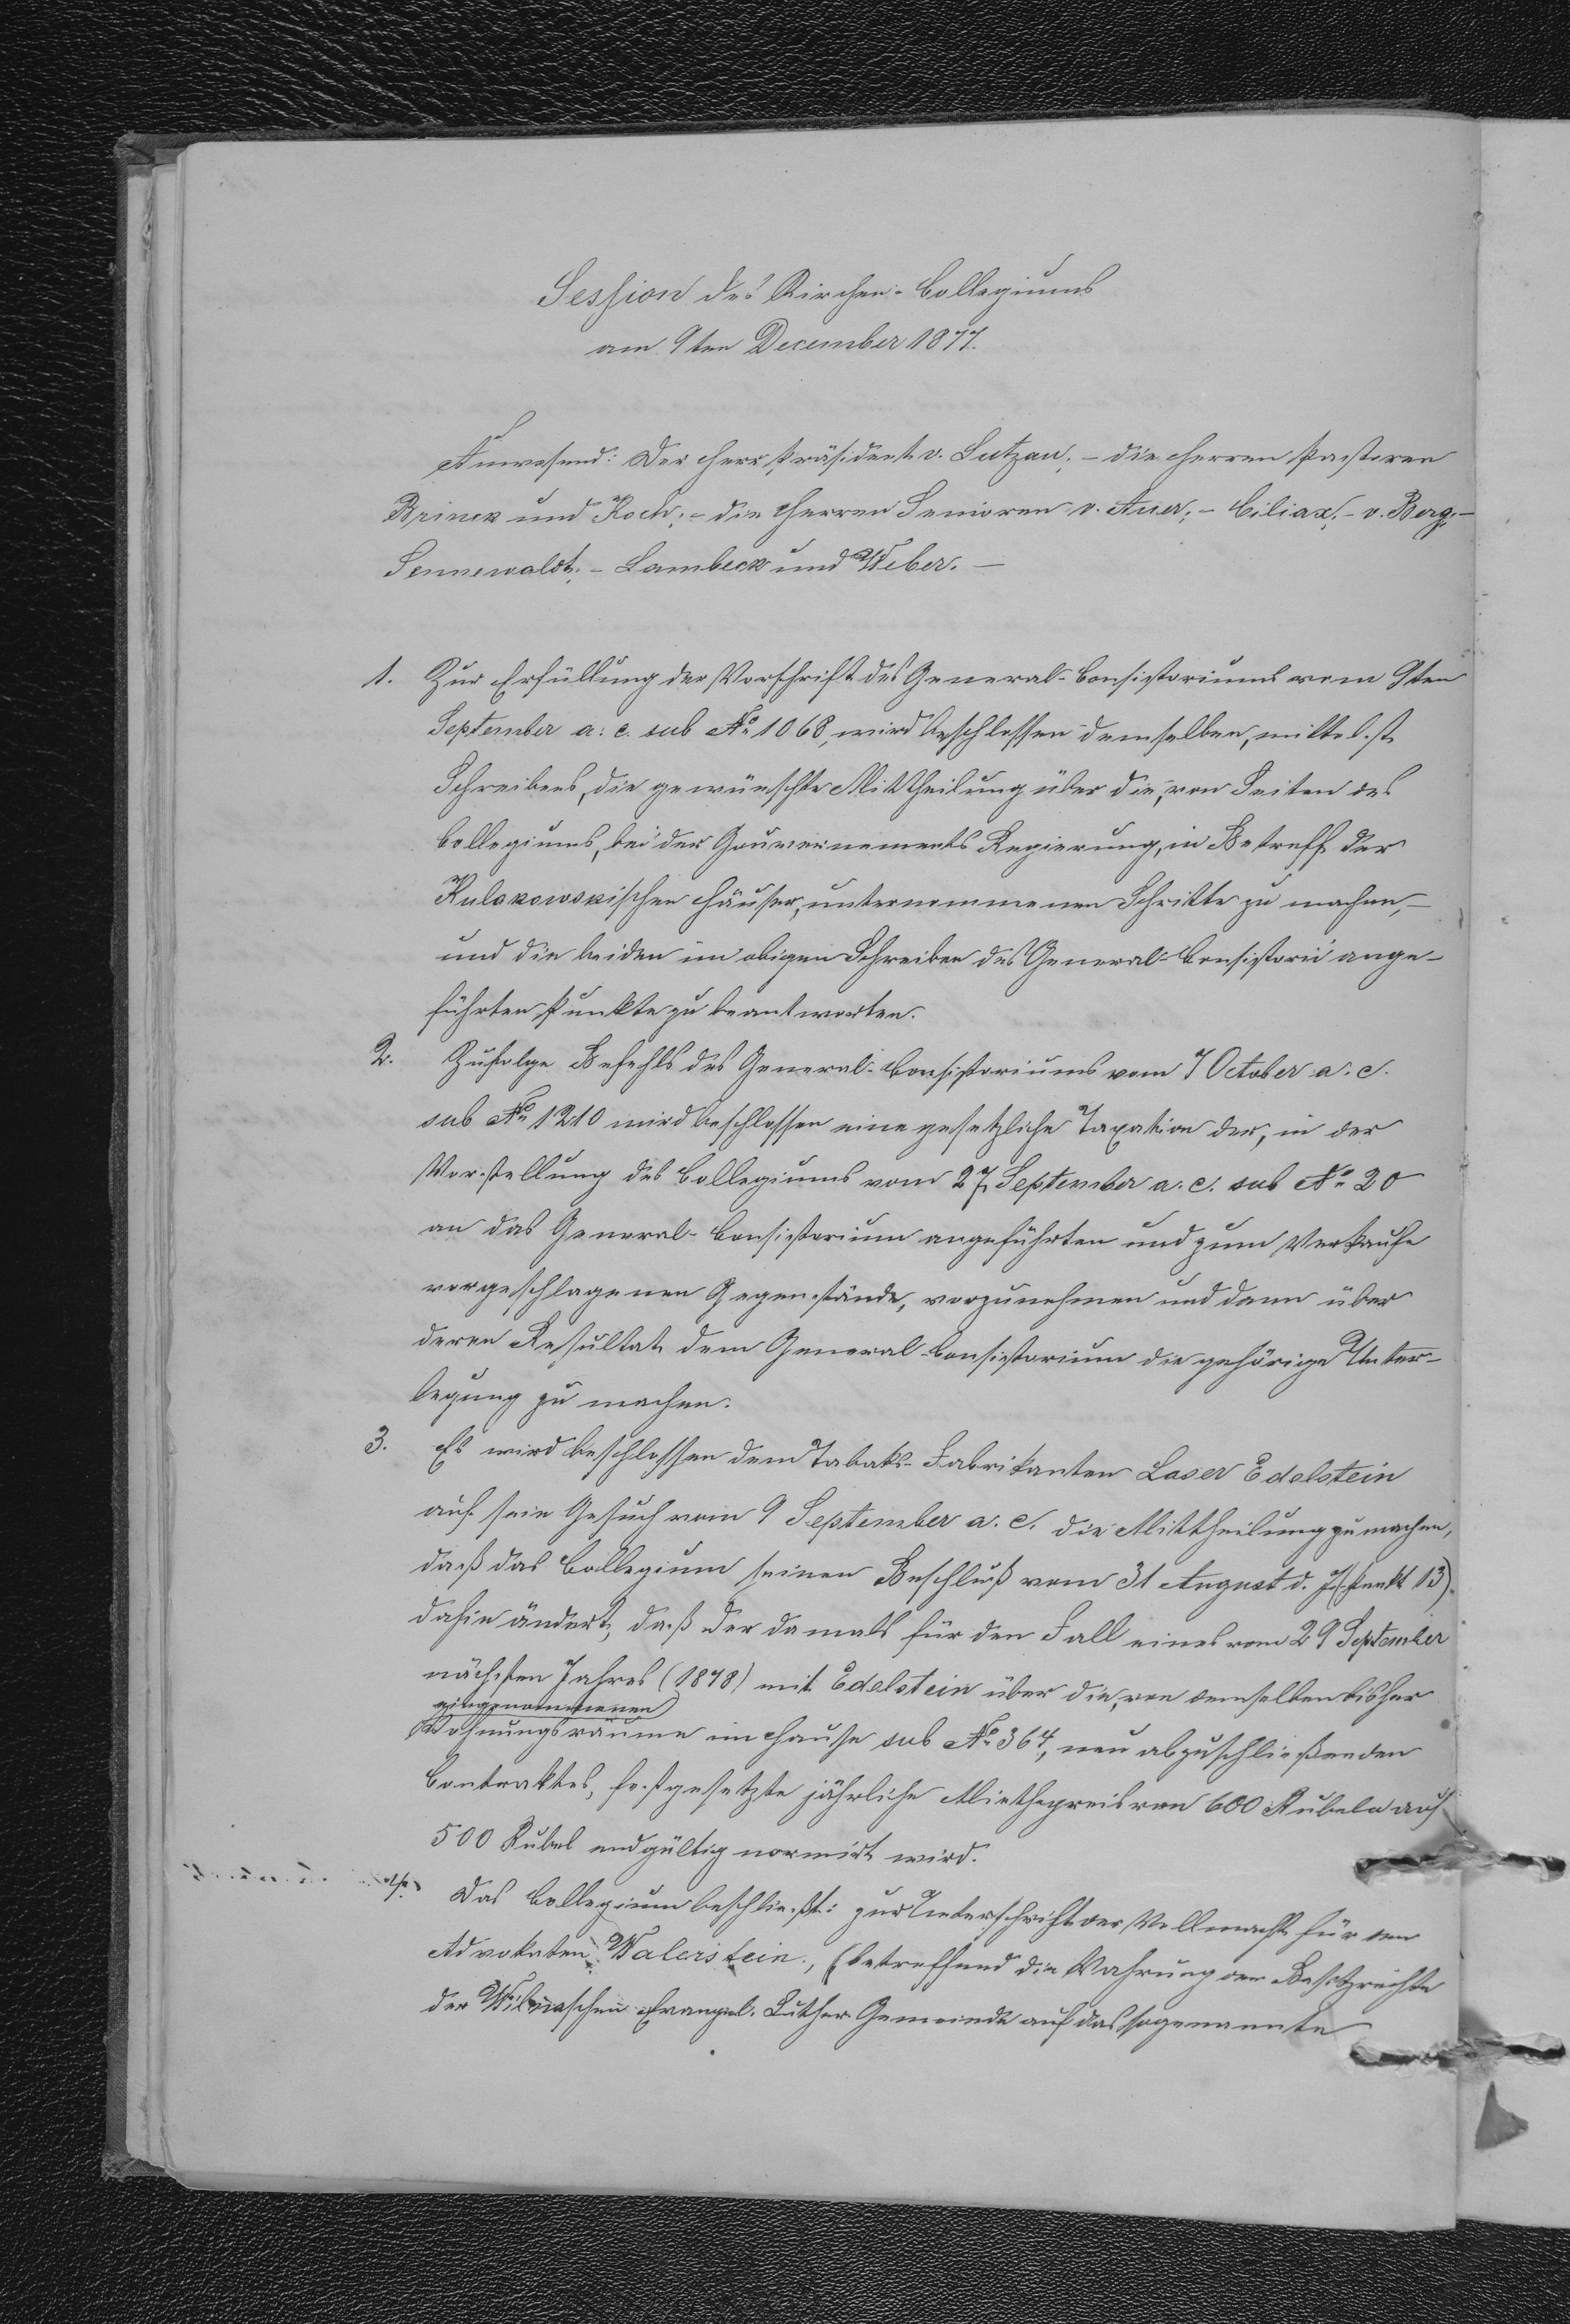 Session des Kirchen-Collegiums
am 9ten December 1877.
Anwesend: Der Herr Präsident v. Lutzau; – die Herren Pastoren
Brinck und Koch; – die Herren Senioren v. Auer; – Ciliax; – v. Berg; –
Sennewaldt; – Lambeck und Weber. –
1. Zur Erfüllung der Vorschrift des General-Consistoriums vom 9ten
September a. c. sub № 1068, wird beschlossen demselben, mittelst
Schreibens, die gewünschte Mittheilung über die, von Seiten des
Collegiums, bei der Gouvernements Regierung, in Betreff der
Kulakowskischen Häuser, unternommenen Schritte zu machen, –
und die beiden im obigen Schreiben des General-Consistorii ange-
führten Punkte zu beantworten.
2. Zufolge Befehls des General-Consistoriums vom 7 October a. c.
sub № 1210 wird beschlossen eine gesetzliche Taxation der, in der
Vorstellung des Collegiums vom 27 September a. c. sub № 20
an das General-Consistorium angeführten und zum Verkaufe
vorgeschlagenen Gegenstände, vorzunehmen und dann über
deren Resultat dem General-Consistorium die gehörige Unter-
legung zu machen.
3. Es wird beschlossen dem Tabaks-Fabrikanten Laser Edelstein
auf sein Gesuch vom 9 September a. c. die Mittheilung zu machen,
daß das Collegium seinen Beschluß vom 31 August d. J. (Punkt 13)
dahin ändert, daß der damals für den Fall eines vom 29 September
nächsten Jahres (1878) mit Edelstein über die, von demselben bisher
eingenommenen
Wohnungsräume im Hause sub № 364, neu abzuschließenden
Contraktes, festgesetzte jährliche Miethspreis von 600 Rubeln auf
500 Rubel endgültig normirt wird.
4. Das Collegium beschließt: zur Unterschrift der Vollmacht für den
Advokaten Walerstein, (betreffend die Wahrung der Besitzrechte
der Wilnaschen Evangel. Luther. Gemeinde auf das sogenannte